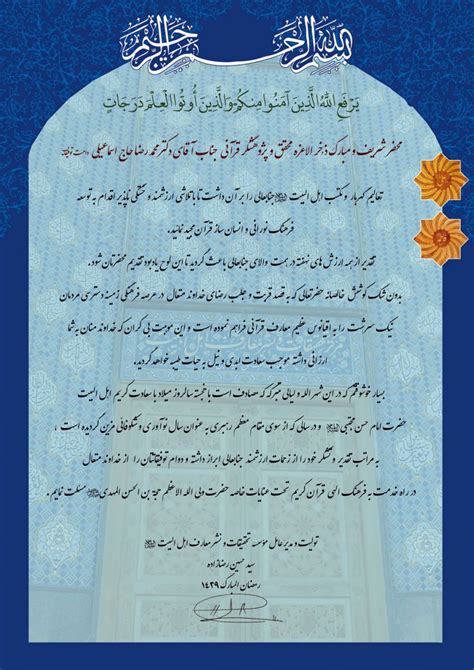 بسم الله الرحمن الرحیم
يَرْفَعِ اللهُ الَّذِينَ آمَنُوا مِنكُمْ وَالَّذِينَ أُوتُوا الْعِلْمَ دَرَجَاتٍ
محضر شریف و مبارک ذخر الاعزه محقق و پژوهشگر قرآنی جناب آقای دکتر محمدرضا حاج اسماعیلی
تعالیم گهربار و مکتب اهل البیت جنابعالی را بر آن داشت تا با تلاشی ارزشمند و خستگی ناپذیر اقدام به توسعه
فرهنگ نورانی و انسان ساز قرآن مجید نمائید.
تقدیر از همه ارزش های نهفته در همت والای جنابعالی باعث گردید تا این لوح یادبود تقدیم محضرتان شود.
بدون شک کوشش خالصانه حضرتعالی که به قصد قربت و جلب رضای خداوند متعال در عرصه فرهنگی زمینه دسترسی مردمان
نیک سرشت را به اقیانوس عظیم معارف قرآنی فراهم نموده است و این موهبت بی کران که خداوند منان به شما
ارزانی داشته موجب سعادت ابدی و نیل به حیات طیبه خواهد گردید.
بسیار خوشوقتم که در این شهر الله و لیالی متبرکه که مصادف است با خجسته سالروز میلاد با سعادت کریم اهل البیت
حضرت امام حسن مجتبی و در سالی که از سوی مقام معظم رهبری به عنوان سال نوآوری و شکوفائی مزین گردیده است،
به مراتب تقدیر و تشکر خود را از زحمات ارزشمند جنابعالی ابراز داشته و دوام توفیقاتتان را از خداوند متعال
در راه خدمت به فرهنگ الهی قرآن کریم تحت عنایات خاصه حضرت ولی الله الاعظم حجة بن الحسن المهدی مسئلت نمایم.
تولیت و مدیر عامل مؤسسه تحقیقات و نشر معارف اهل البیت
سید حسین رضازاده
رمضان المبارک ۱۴۲۹